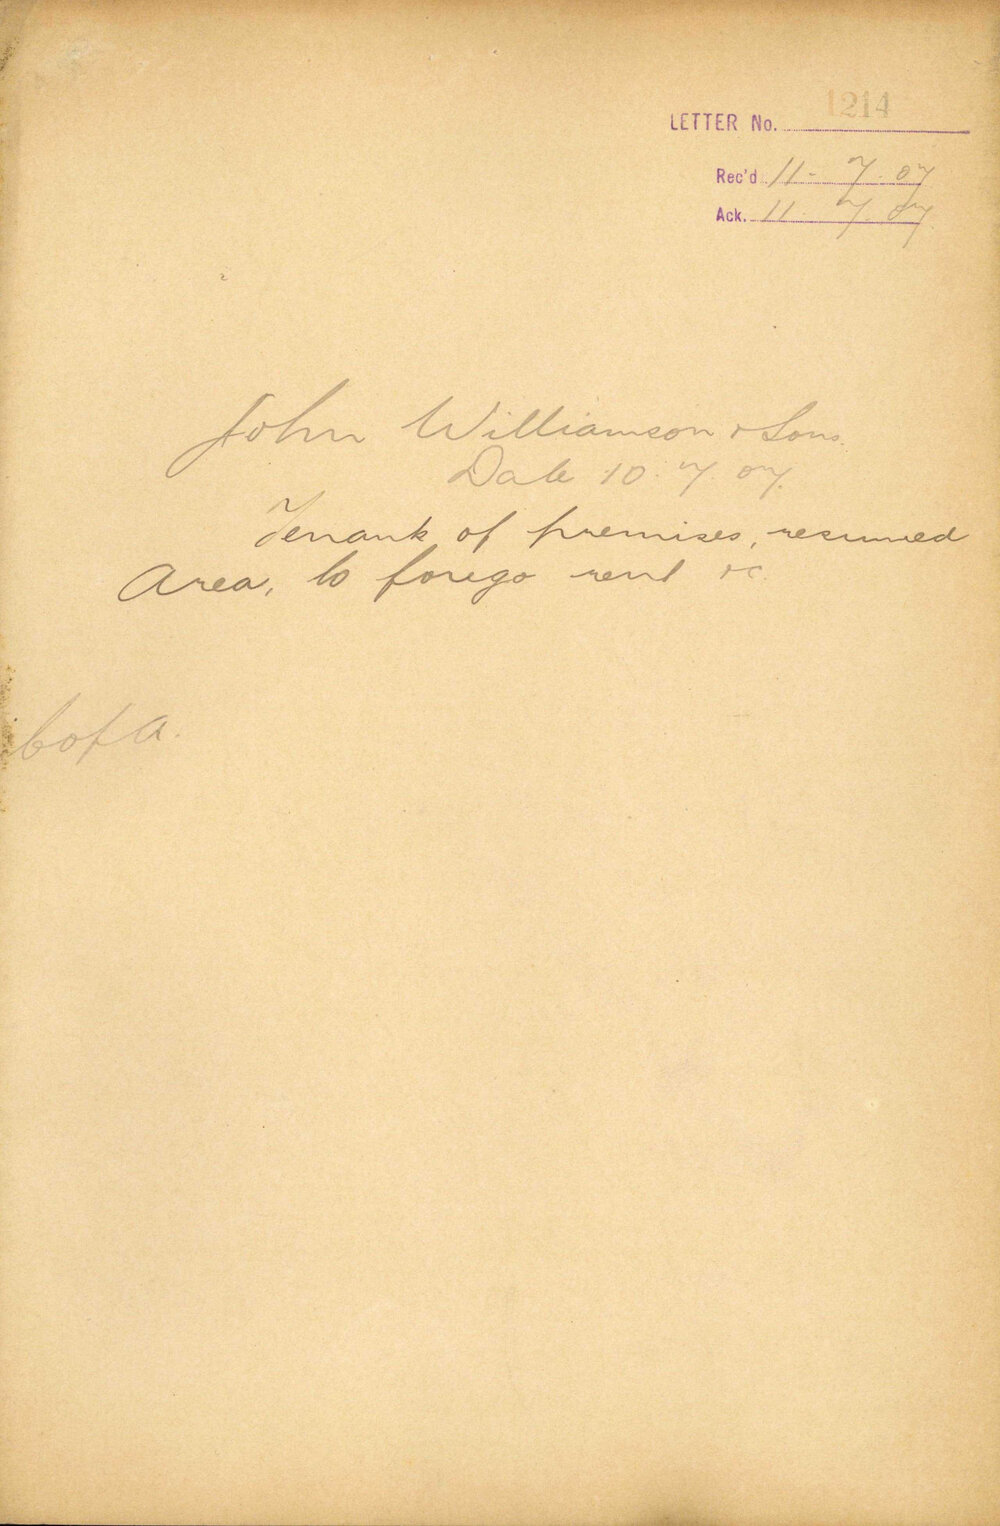 LETTER No. 1214
Rec'd 11-7.07
Ack. 11 7.07
John Williamson & Sons.
Date 10.7.07.
Tenants of premises, resumed
Area, to forego rent &c
C of A.